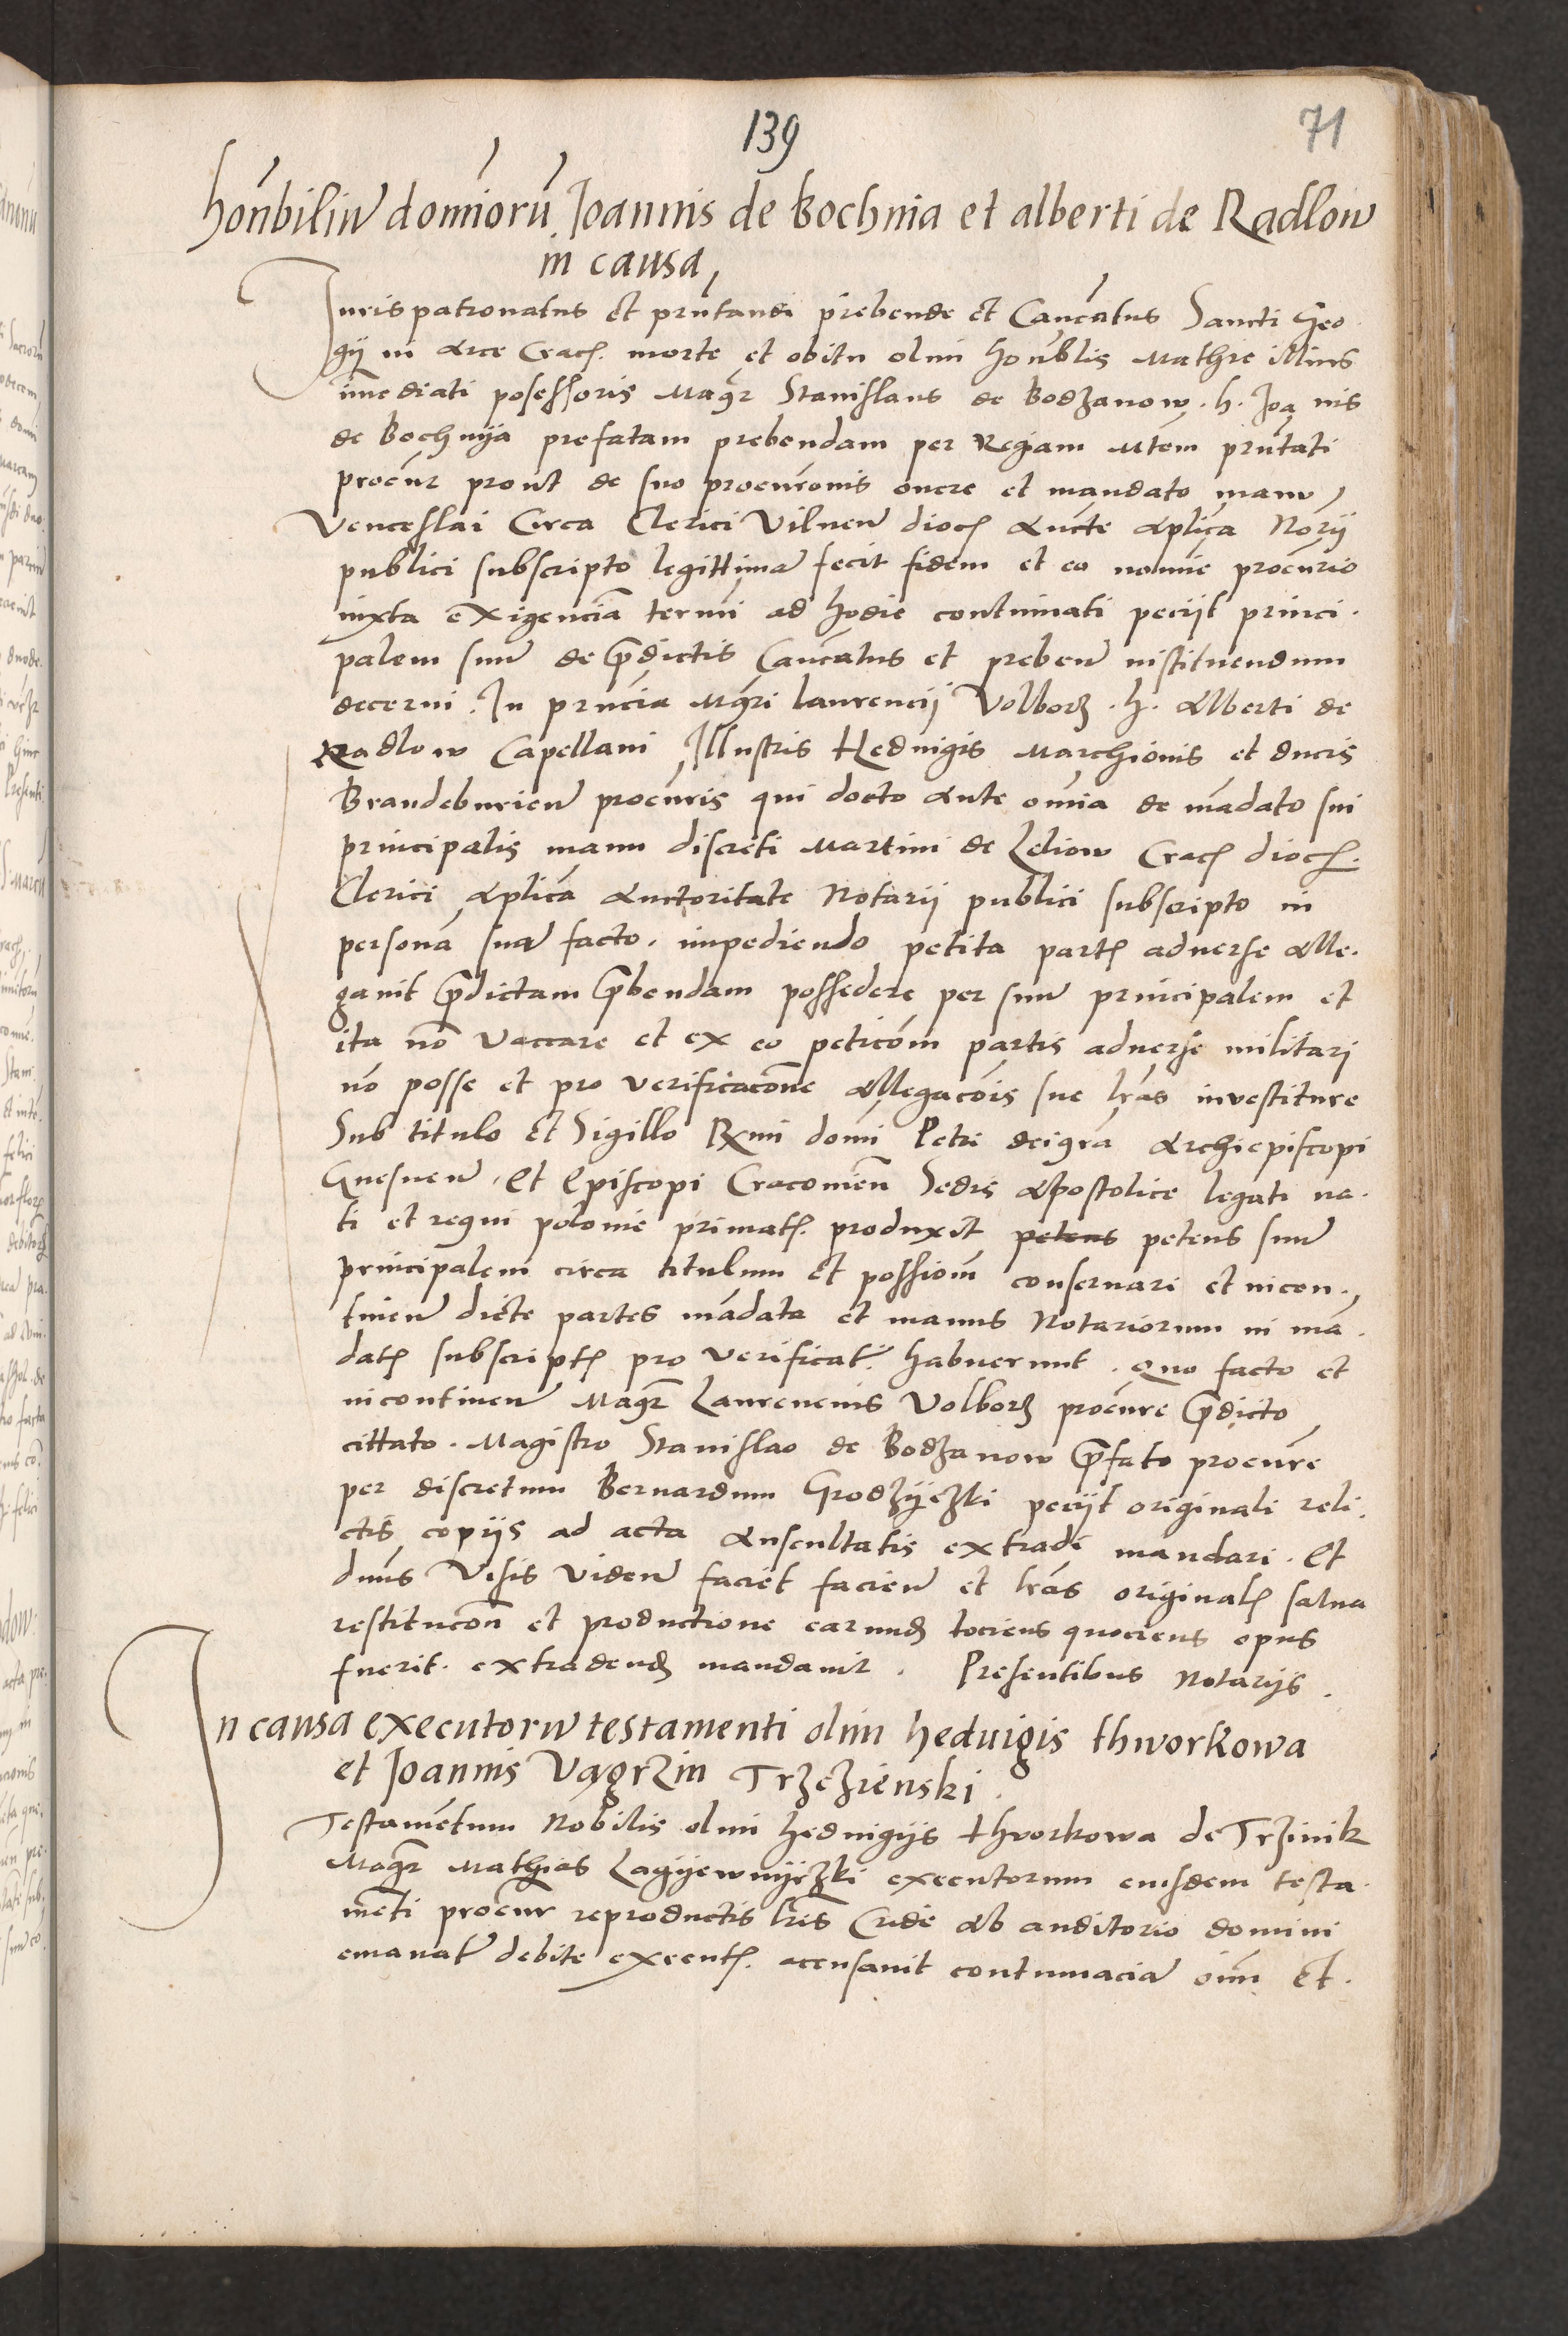 139
71
honbiliu domiorũ Joannis de Bochnia et alberti de Radlow
in causa
Juris patronatus et prntandi prebende et Cancatus Sancti Geo
gij in Arce Crac. morte et obitu olim honblis Mathie illius
imediati posessoris Magr Stanislaus de Bodzanow . h . Joa nis
de Bochnija prefatam prebendam per Regiam Mtem prntati
procur prout de suo procuronis onere et mandato manu
Venceslai Circa Clerici Vilnen dioc Aucte Aplica Norij
publici subscripto legittima fecit fidem et eo nomie procurio
iuxta exigencia termi ad hodie continuati pecijt princi.
palem suu de Predictis Cancatus et preben instituendum
decerni . In prncia Mgri laurencij Volborz . h . Alberti de
Radlow Capellani Illustris Heduigis Marchionis et ducis
Brandeburien procuris qui docto Ante omia de madato sui
principalis manu discreti Martini de Lelow Crac dioc.
Clerici Aplica Auctoritate Notarij publici subscripto in
persona sua facto . impediendo petita part adverse Alle.
gauit Predictam Prebendam possedere per suu principalem et
ita no vaccare et ex eo peticom partis aduerse militari
no posse et pro verificacone Allegacois sue lras investiture
Sub titulo et Sigillo Rxmi domi Petri deigra Archiepiscopi
Gnesnen . et Episcopi Cracouien Sedis Apostolice legati na.
ti et regni polonie primat. produxit petens petens suu
principalem circa titulum et possiom conseruari et incon.
tinen dicte partes madata et manus Notariorum in ma.
dat subscript pro verificat. habuerunt . Quo facto et
incontinen Magr Laurencius Volborz procure Predicto
cittato . Magistro Stanislao de Bodzanow Prefato procure
per discretum Bernardum Grodzijczki pecijt originali reli.
ctis copijs ad acta Auscultatis extradi mandari . Et
dnus Visis viden faciet facien et lras original salua
restitucon et productione earund tociens quociens opus
fuerit . extradend mandauit . Presentibus Notarijs .
In causa executoru testamenti olim heduigis thworkowa
et Joannis Vagrzin Trzczienski .
Testametum Nobilis olim heduigijs thworkowa de Trzinik
Magr Mathias Lagijewnijczki executorum eiusdem testa.
meti procur reproductis lris Cride Ab auditorio domini
emanat debite execut. accusauit contumacia oim et .